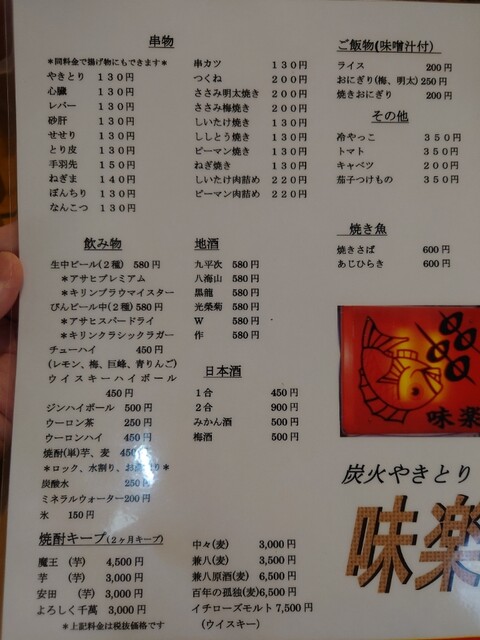 串物
＊同料金で揚げ物にもできます＊
やきとり １３０円
心臓 １３０円
レバー １３０円
砂肝 １３０円
せせり １３０円
とり皮 １３０円
手羽先 １５０円
ねぎま １４０円
ぼんちり １３０円
なんこつ １３０円
串カツ １３０円
つくね ２００円
ささみ明太焼き ２００円
ささみ梅焼き ２００円
しいたけ焼き １３０円
ししとう焼き １３０円
ピーマン焼き １３０円
ねぎ焼き １３０円
しいたけ肉詰め ２２０円
ピーマン肉詰め ２２０円
ご飯物(味噌汁付)
ライス 200円
おにぎり(梅、明太) 250円
焼きおにぎり 200円
その他
冷やっこ ３５０円
トマト ３５０円
キャベツ ２００円
茄子つけもの ３５０円
焼き魚
焼きさば 600円
あじひらき 600円
飲み物
生中ビール(２種) 580円
＊アサヒプレミアム
＊キリンブラウマイスター
びんビール中(２種) 580円
＊アサヒスパードライ
＊キリンクラシックラガー
チューハイ 450円
(レモン、梅、巨峰、青りんご)
ウイスキーハイボール
450円
ジンハイボール 500円
ウーロン茶 250円
ウーロンハイ 450円
焼酎(単)芋、麦 450円
＊ロック、水割り、お湯割り＊
炭酸水 250円
ミネラルウォーター200円
氷 150円
地酒
九平次 580円
八海山 580円
黒龍 580円
光榮菊 580円
W 580円
作 580円
日本酒
１合 450円
２合 900円
みかん酒 500円
梅酒 500円
味楽
炭火やきとり
味楽
焼酎キープ(２ヶ月キープ)
魔王 (芋) 4,500円
芋 (芋) 3,000円
安田 (芋) 3,000円
よろしく千萬 3,000円
＊上記料金は税抜価格です
中々(麦) 3,000円
兼八(麦) 3,500円
兼八原酒(麦) 6,500円
百年の孤独(麦)6,500円
イチローズモルト 7,500円
(ウイスキー)